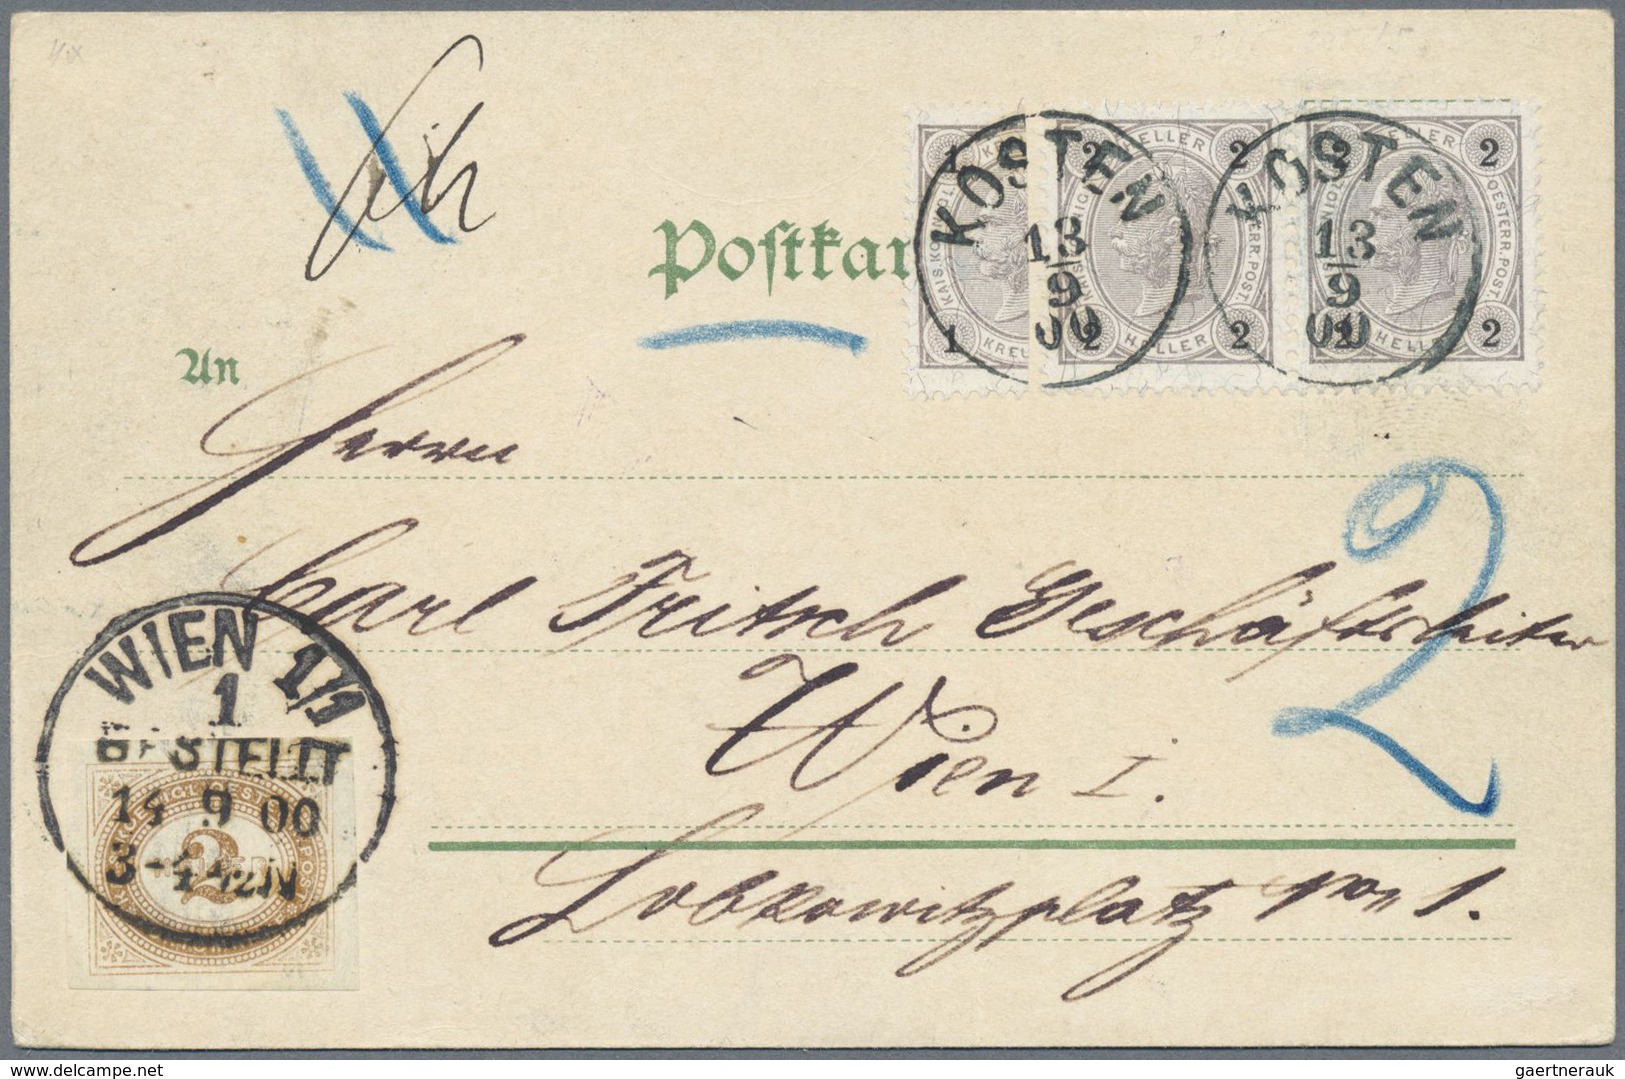 Postkar
An
KOSTEN
13
9
00
KOSTEN
13
9
00
1 KREU 1
KAIS. KÖNIGL.
2 HELLER 2
2 HELLER 2
OESTERR. POST.
2 HELLER 2
2 HELLER 2
OESTERR. POST.
Herrn
Carl Fritsch Geschäftsleiter
2
Wien I.
Lobkowitzplatz No 1.
WIEN 1/1
1
BESTELLT
14 9 00
2
gaertnerauk